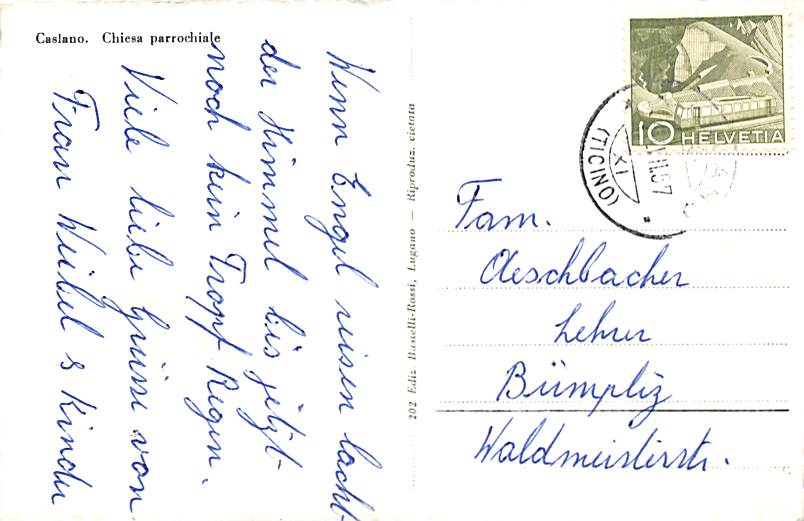 Caslano. Chiesa parrochiale
Wenn Engel reisen lacht
der Himmel bis jetzt
noch kein Tropf Regen.
Viele liebe Grüsse von
Frau Weibel & Kinder
202 Ediz. Rusnelli-Rossi, Lugano — Riproduz. vietata
10 HELVETIA
(TICINO)
XI
VII.57
Fam.
Aeschbacher
Lehrer
Bümpliz
Waldmeisterstr.